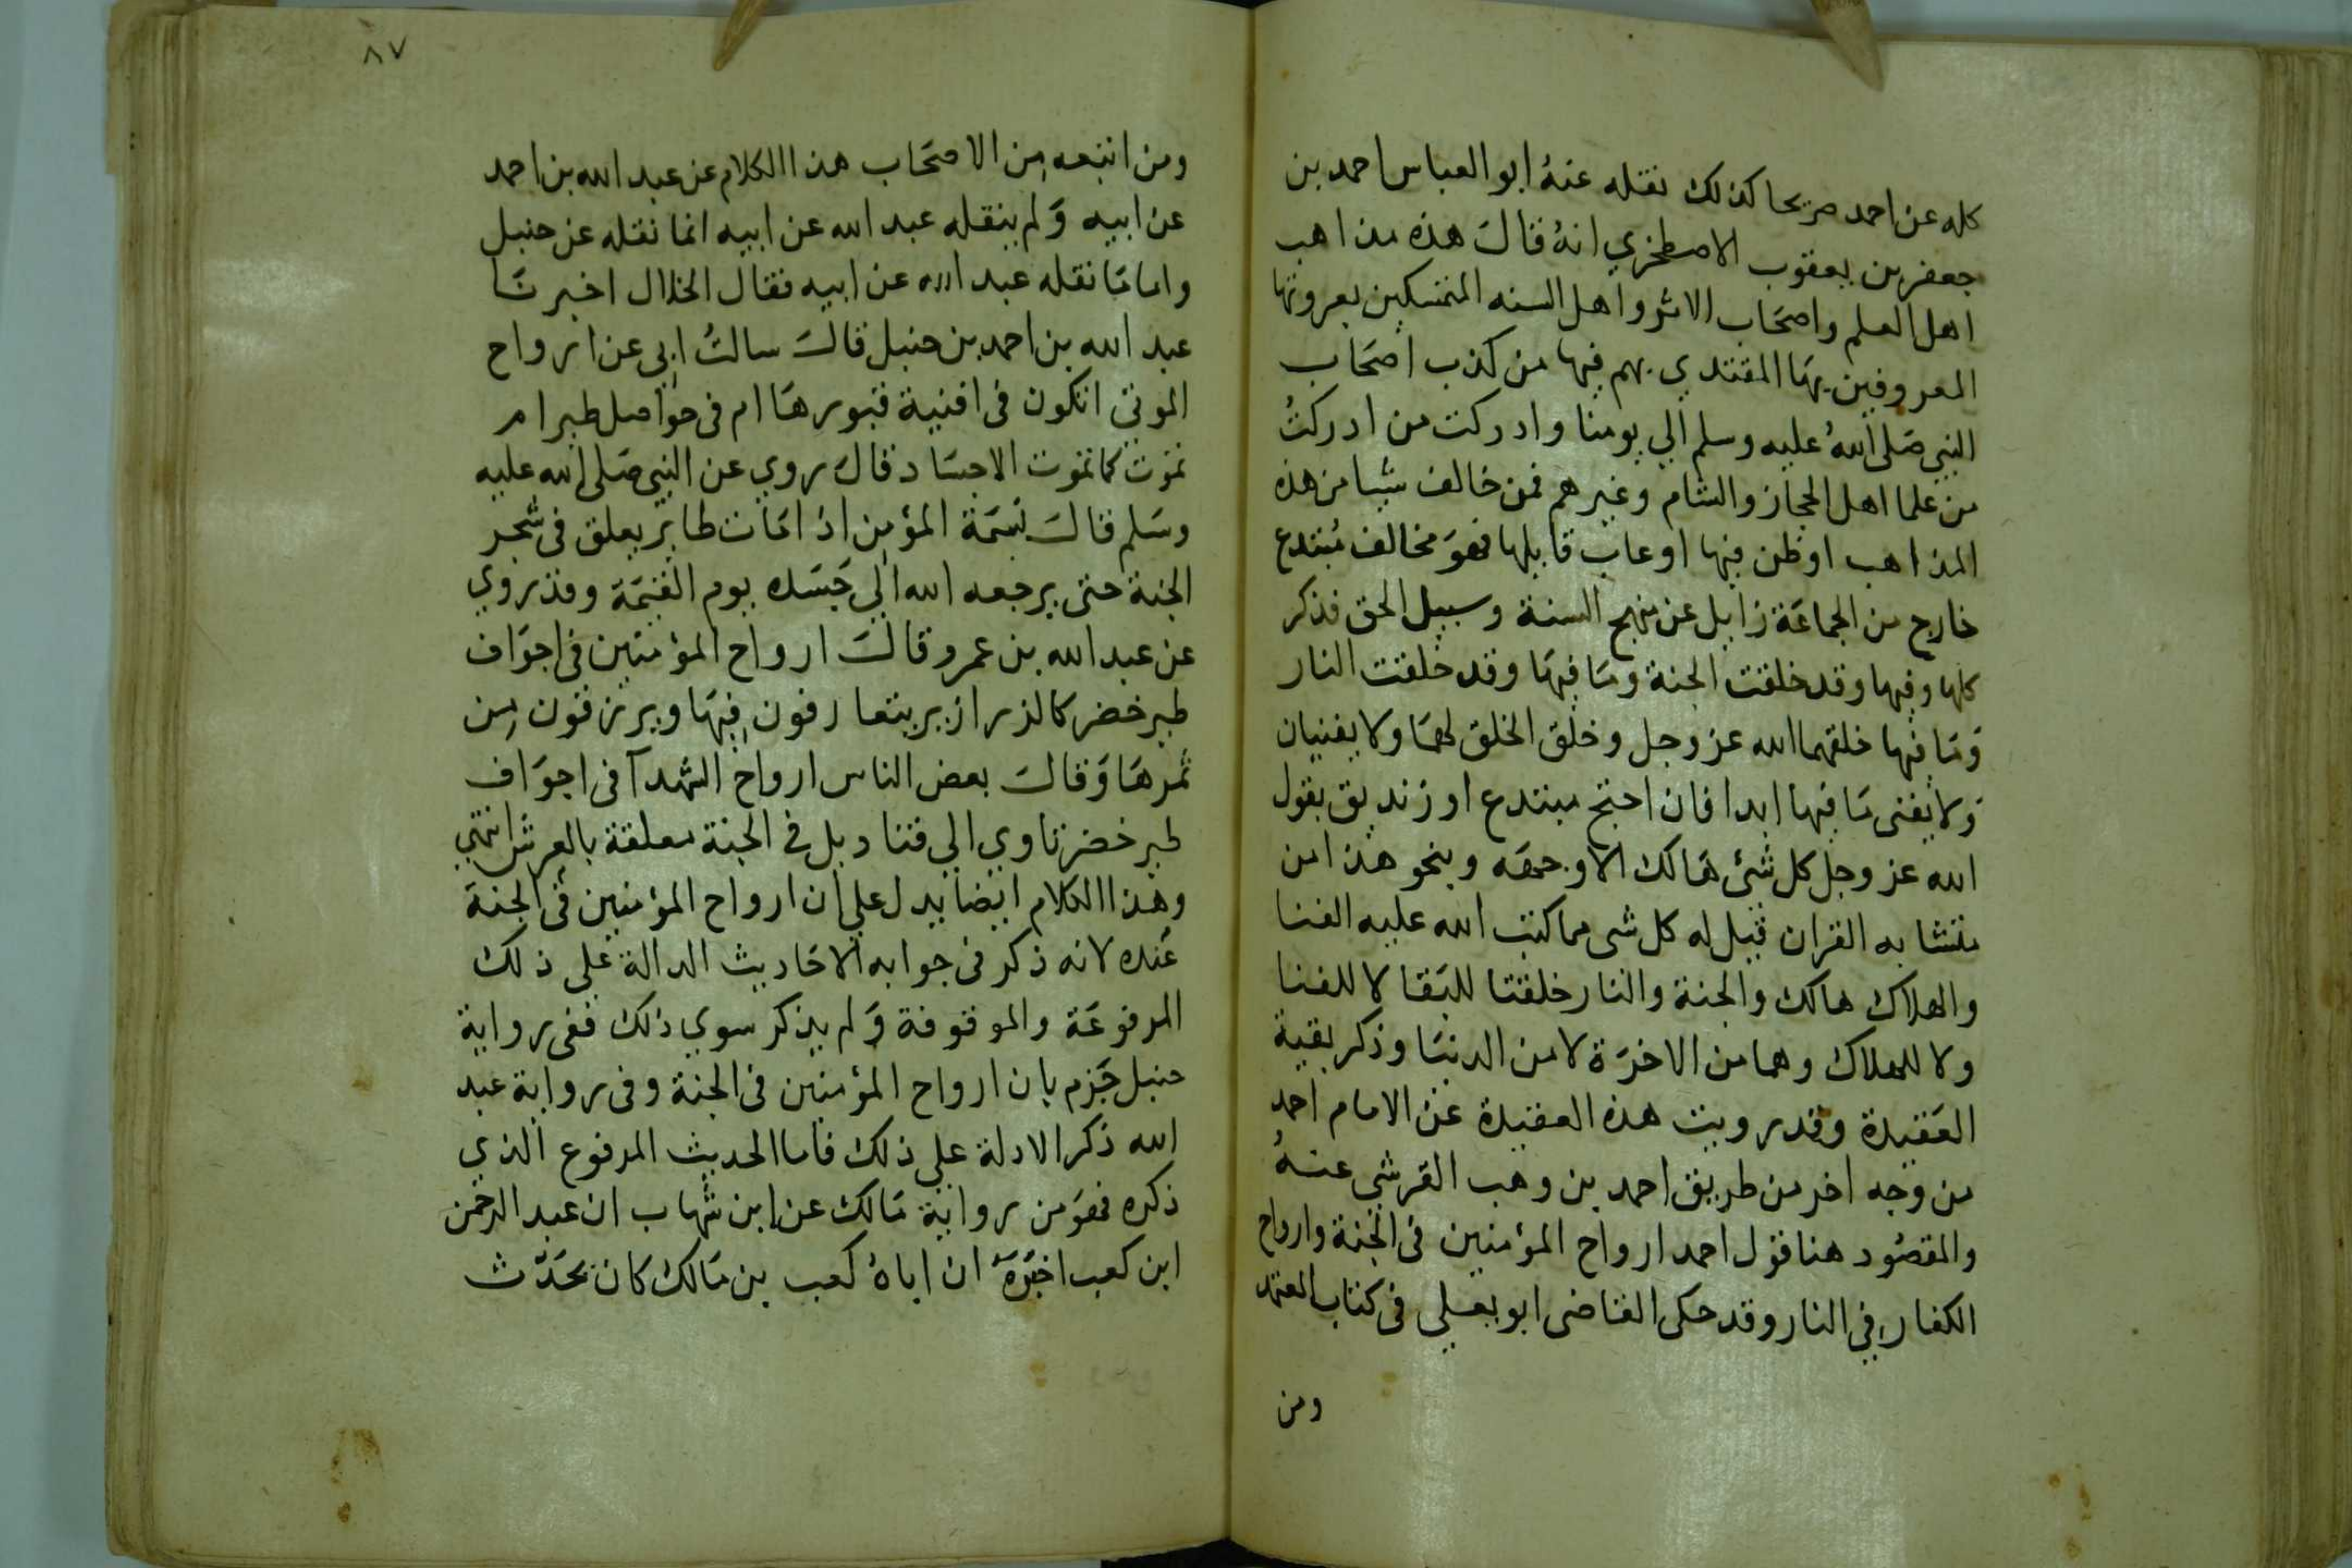 كله عن احمد صريحا كذلك نقله عنهُ ابو العباس احمد بن
جعفر بن يعقوب الاصطخري انهُ قالَ هذه مذاهب
اهل العلم واصحَاب الاثر واهل السنه المتمسكين بعروتها
المعروفين بهَا المقتدي بهم فيها من كذب اصحَاب
النبي صَلى اللهُ عليه وسلم الي يومنا وادركت من ادركتُ
من علما اهل الحجاز والشام وغيرهم فمن خالف شيا من هذه
المذاهب اوظن فيها او عاب قايلها فهوَ مخالف مُبتدع
خارج من الجماعَة زايل عن منهج السنة وسبيل الحق فذكر
كلها وفيها وقد خلقت الجنة ومَا فيهَا وقد خلقت النار
وَمَا فيها خلقهما الله عز وجل وخلق الخلق لهمَا ولا يفنيان
وَلا يفنى مَا فيها ابدا فان احتج مبتدع او زنديق بقول
الله عز وجل كل شئ هَالك الا وجهه وبنحو هذا من
متشابه القران قيل له كل شى مما كتب الله عليه الفنا
والهلاك هالك والجنة والنار خلقتا للبَقا لا للفنا
ولا للهلاك وهما من الاخرَة لا من الدنيَا وذكر بقية
العَقيدة وقد رويت هذه العقيدة عن الامام احمد
من وجه اخر من طريق احمد بن وهب القرشي عنهُ
والمقصُود هنا قول احمد ارواح المؤمنين فى الجنة وارواح
الكفار في النار وقد حكى القاضى ابو يعلي فى كتاب المعتمد
ومن
٨٧
ومن اتبعه من الاصحَاب هذا الكلام عن عبد الله بن احمد
عن ابيه وَلم ينقله عبد الله عن ابيه انما نقله عن حنبل
واما مَا نقله عبد الله عن ابيه فقال الخلال اخبرنَا
عبد الله بن احمد بن حنبل قالَ سالتُ ابي عن ارواح
الموتي اتكون فى افنية قبورهَا ام فى حواصل طير ام
تموت كما تموت الاجسَاد قالَ روي عن النبي صَلى الله عليه
وسَلم قالَ نسمَة المؤمن اذا مَات طاير يعلق فى شجر
الجنة حتى يرجعه الله الي جَسَده يوم القيمَة وقد روي
عن عبد الله بن عمرو قالَ ارواح المؤمنين فى اجوَاف
طير خضر كالزرازير يتعارفون فيهَا ويرزقون من
ثمرهَا وَقالَ بعض الناس ارواح الشهدآ فى اجوَاف
طير خضر تاوي الي قناديل في الجنة معلقة بالعرش انتهي
وهذا الكلام ايضا يدل علي ان ارواح المؤمنين فى الجنة
عَنده لانه ذكر فى جوابه الاحَاديث الدالة علي ذلك
المرفوعَة والموقوفة وَلم يذكر سوي ذلك ففى رواية
حنبل جَزم بان ارواح المؤمنين فى الجنة وفى رواية عبد
الله ذكر الادلة علي ذلك فاما الحديث المرفوع الذي
ذكره فهوَ من رواية مَالك عن ابن شهاب ان عبد الرحمن
ابن كعب اخبَرَهُ ان اباهُ كعب بن مَالك كان يحَدّث